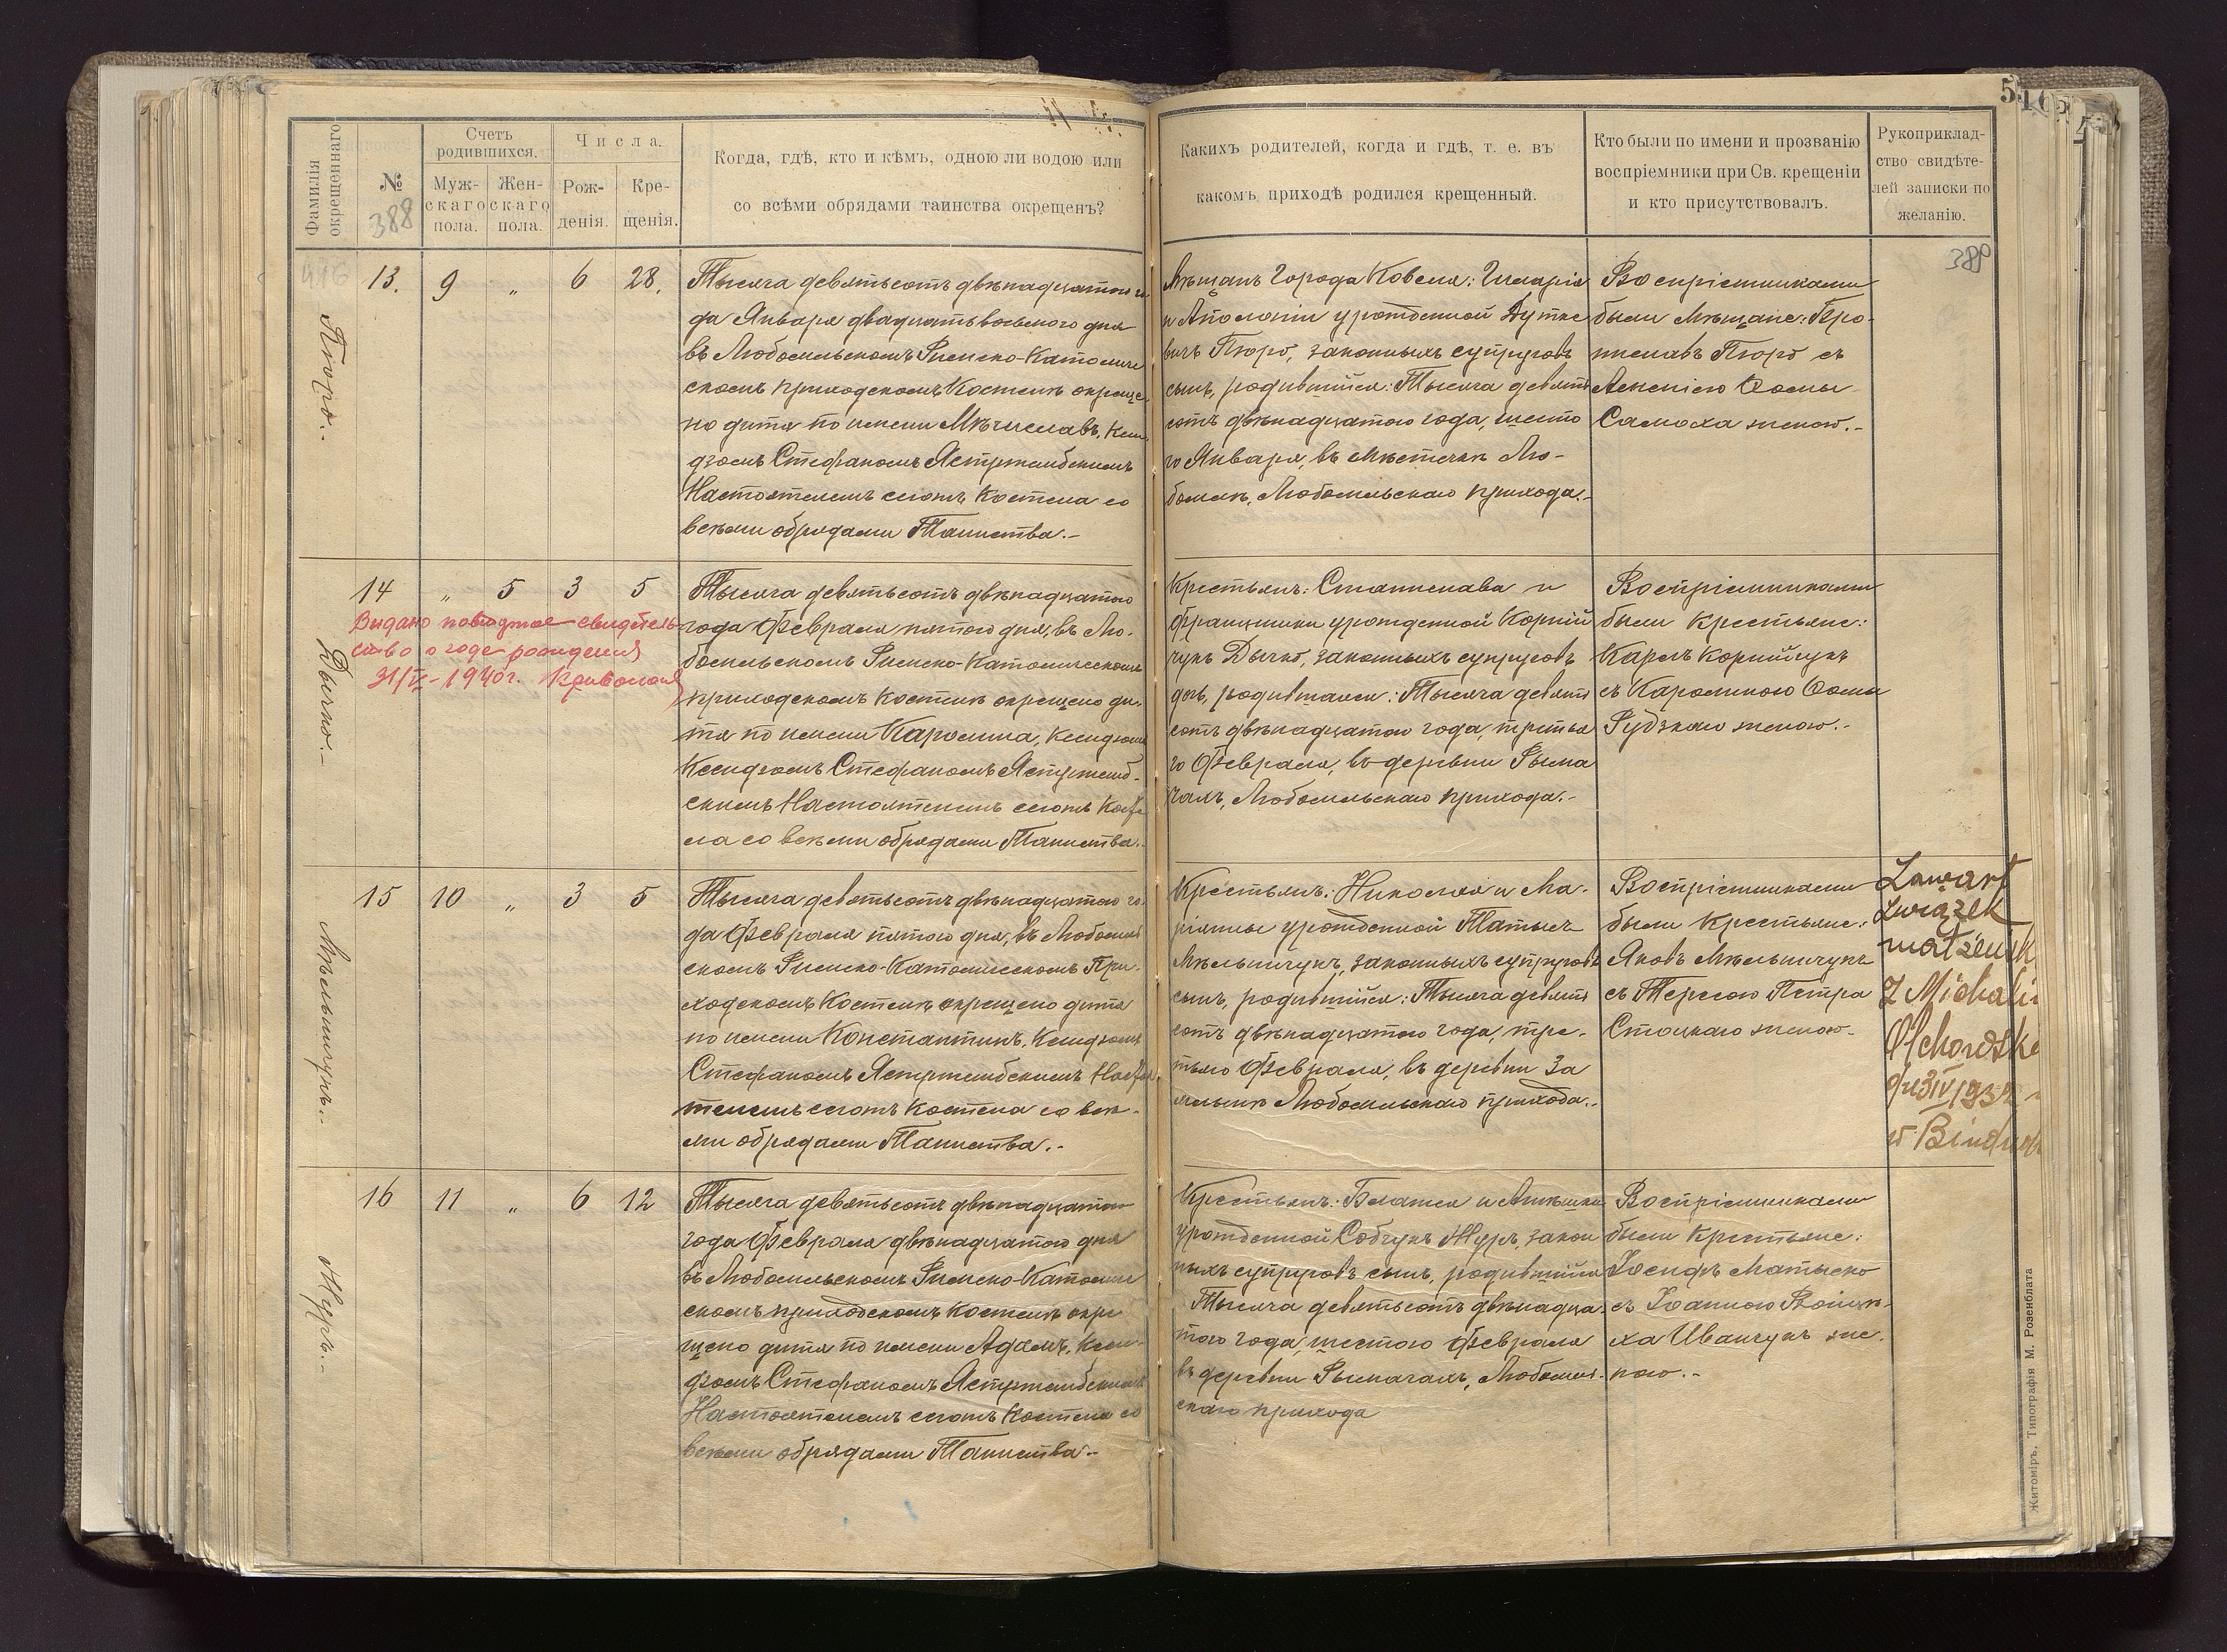 Фамилія окрещеннаго
№
388
Счетъ родившихся.
Муж-
скаго
пола.
Жен-
скаго
пола.
Числа.
Рож-
денія.
Кре-
щенія.
Когда, гдѣ, кто и кѣмъ, одною ли водою или
со всѣми обрядами таинства окрещенъ?
Каких​ъ родителей, когда и гдѣ, т. е. въ
какомъ приходѣ родился крещенный.
Кто были по имени и прозванію
воспріемники при Св. крещеніи
и кто присутствовалъ.
Рукоприклад-
ство свидѣте-
лей записки по
желанію.
13. 9 „ 6 28.
Тысяча девятьсотъ двѣнадцатого го
да Января двадцатьвосьмого дня
въ Любомльскомъ Римско-Католиче
скомъ приходскомъ Костелѣ окреще
но дитя по имени Мѣчиславъ, Ксен
дзомъ Стефаномъ Ястржембскимъ
Настоятелемъ сего​жъ Костела со
всѣми обрядами Таинства.-
Мѣщанъ Города Ковеля: Иларія
и Аполоніи урожденной Дутке
вичъ Пюро, законныхъ супруговъ
сынъ, родившійся: Тысяча девять
сотъ двѣнадцатого года, шесто
го Января, въ мѣстечкѣ Лю-
бомлѣ, Любомльскаго прихода.-
Воспріемниками
были Мѣщане: Бро-
ниславъ Пюро съ
Ѳомы
Самоха женою.-
Пюро.-
14 „ 5 3 5
Видано повидмое свидетель
ство о годе рождения
31/V-1940г.
Дычко.-
Тысяча девятьсотъ двѣнадцатого
года Февраля пятого дня, въ Лю-
бомльскомъ Римско-Католическомъ
приходскомъ Костелѣ окрещено ди-
тя по имени Каролина, Ксендзомъ
Ксендзомъ Стефаномъ Ястржемб-
скимъ Настоятелемъ сегожъ Косте
ла со всѣми обрядами Таинства.-
Крестьянъ: Станислава и
Францишки урожденной Корній
чукъ Дычко, законныхъ супруговъ
дочь, родившаяся: Тысяча девять
сотъ двѣнадцатого года, третья
го Февраля, въ деревни Рыма
чахъ, Любомльскаго прихода.-
Воспріемниками
были Крестьяне:
Карлъ Корнійчукъ
съ Каролиною Ѳомы
Рудзкаго женою.-
15 10 „ 3 5
Мѣльничукъ.-
Тысяча девятьсотъ двѣнадцатого го
да Февраля пятого дня, въ Любомль
скомъ Римско-Католическомъ При-
ходскомъ Костелѣ окрещено дитя
по имени Константинъ, Ксендзомъ
Стефаномъ Ястржембскимъ Настоя
телемъ сегожъ Костела со всѣ-
ми обрядами Таинства.-
Крестьянъ: Николая и Ма-
ріянны урожденной Татысъ
Мѣльничукъ, законныхъ супруговъ
сынъ, родившійся: Тысяча девять
сотъ двѣнадцатого года, тре-
тьяго Февраля, въ деревни За
Любомльскаго прихода.-
Воспріемниками
были Крестьяне:
Яковъ Мѣльничукъ
съ Тересою Петра
Стоцкаго женою.-
Zawarł
związek
małżeńsk
z Michali
Olchowsk
dn 3 IV 193
w Bindu
16 11 „ 6 12
Журъ.-
Тысяча девятьсотъ двѣнадцатого
года Февраля двѣнадцатого дня
въ Любомльскомъ Римско-Католиче
скомъ приходскомъ Костелѣ окре
щено дитя по имени Адамъ, Ксен-
дзомъ Стефаномъ Ястржембскимъ
Настоятелемъ сегожъ Костела со
всѣми обрядами Таинства.-
Крестьянъ: Блажея и Агнѣшки
урожденной Собчукъ Журъ, закон
ныхъ супруговъ сынъ, родившійся
Тысяча девятьсотъ двѣнадца-
того года, шестого Февраля
въ деревни Рымачахъ, Любомль-
скаго прихода
Воспріемниками
были Крестьяне:
Іосифъ Матыско
съ Іоанною Войцѣ-
ха Иванчукъ же-
ною.-
Житоміръ, Типографія М. Розенблата